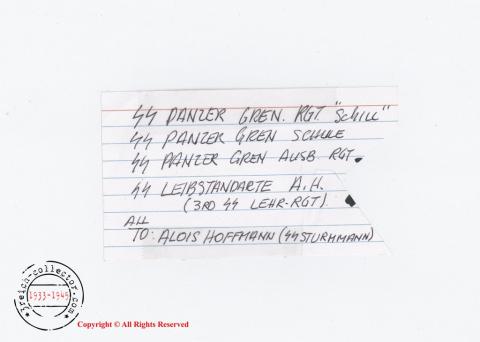 ϟϟ PANZER GREN. RGT. "SCHILL"
ϟϟ PANZER GREN SCHULE
ϟϟ PANZER GREN AUSB RGT.
ϟϟ LEIBSTANDARTE A.H.
(3RD ϟϟ LEHR-RGT)
ALL
TO: ALOIS HOFFMANN (ϟϟ STURMMANN)
3reich-collector.com
1933-1945
Copyright © All Rights Reserved